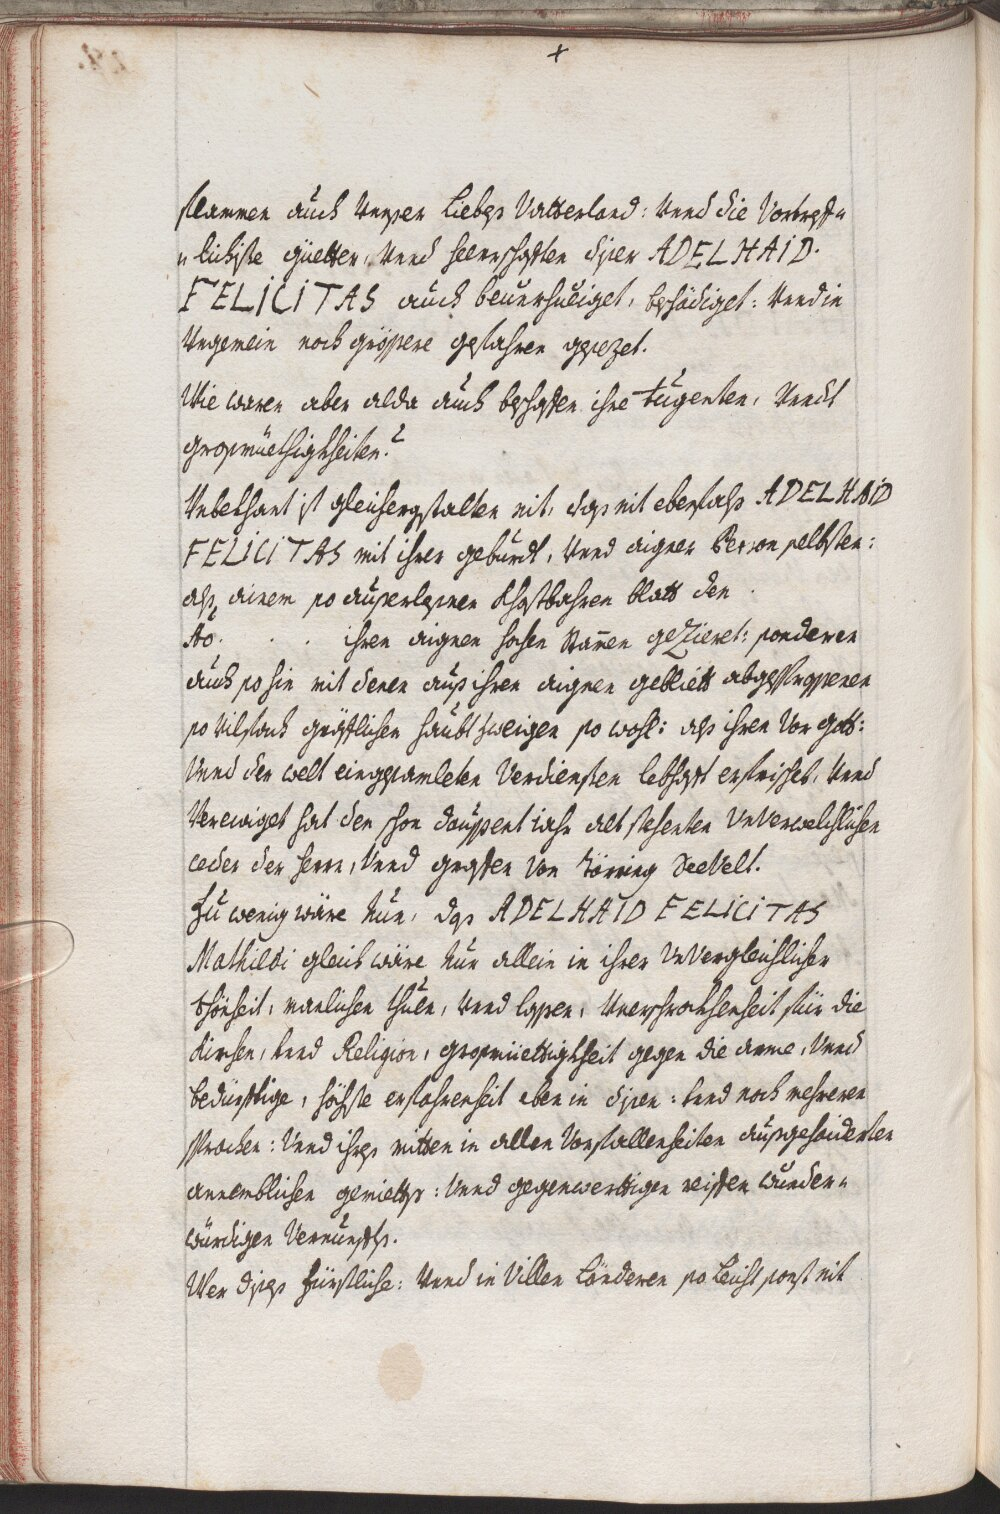 +
flammen auch Unsser Liebes Vatterland: Unnd die Vortreff=
=lichiste güetter, Unnd herrschafften diser ADELHAID.
FELICITAS auch beunruhiget, beschädiget: Unnd in
Ungemein noch grössere gefahren gesezet.
Wie waren aber alda auch beschaffen ihre tugenten, Unndt
grosmüethigkheiten?
Unbekhant ist gleichergstalten nit, das nit ebenfahls ADELHAID
FELICITAS mit ihrer geburdt, Unnd aigner Person selbsten:
alß ainem so auserlesnen Khostbahren blatt den .
. . . ihren aignen hohen Stam̄en geZieret: sonderen
auch so hin mit denen auß ihren aignen geblüett abgesprossenen
so Vilfach gräfflichen haubt zweigen so wohl: alß ihren Vor Gott:
Unnd der welt eingesamleten Verdiensten lebhafft erfrischet, Unnd
Verewiget hat den schon daussent iahr alt stehenten UnVerwelchlichen
ceder der herrn, Unnd graffen Von Törring Seeveld.
Zu wenig wäre Nun, das ADELHAID FELICITAS
Mathildi gleich wäre Nur allein in ihrer UnVergleichlichen
schönheit, manlichen thuen, Unnd lassen, Unerschrockhenheit für die
Kirchen, Unnd Religion, grosmüettigkheit gegen die arme, Unnd
bedürfftige, höchste erfahrenheit eben in disen: Unnd noch mehreren
sprachen: Unnd ihres mitten in allen Vorfallenheiten ausgeheiderten
annemblichen gemietts: Unnd gegenwerttigen reiffen wunder=
würdigen Vernunffts.
Wer dises Fürstliche: Unnd in Villen Länderen so Leicht sonst nit